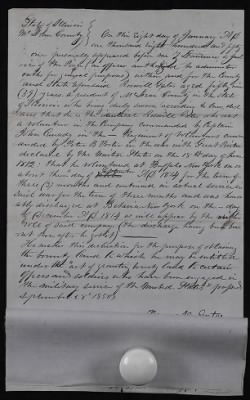 State of Illinois }
McLean County } On this Eight day of January A.D.
one thousand eight hundred and fifty
one personally appeared before me
within and for the County
and State aforesaid Roswell aged fifty seven
(57) years a resident of McLean County in the State
of Illinois who being duly sworn according to law de-
clares that he is the identical Roswell who was
a volunteer in the Company commanded by Captain
in the Regiment of Volunteers comm-
anded by Peter B Porter in the war with Great Britain
declared by the United States on the 18th day of June
1812. That he volunteered at Buffalo New York on or
about the day A.D. 1814 for the term of
three (3) months and continued in actual service in
said war for the term of three months and was honora-
bly discharged at Batavia New York on the day
of December A.D. 1814 as will appear by the muster
rolls of said company (The discharge having been
)
He makes this declaration for the purpose of obtaining
the bounty land to which he may be entitled
under the "act granting bounty land to certain
officers and soldiers who have been engaged in
the military service of the United States" passed
September 28th 1850